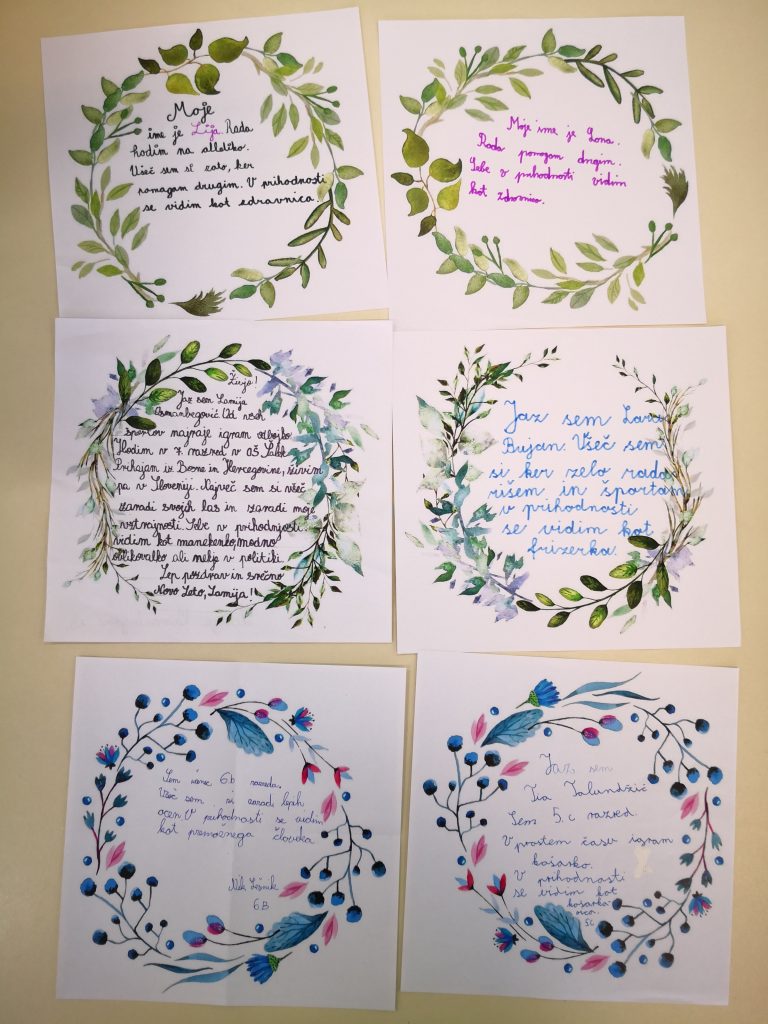 Moje
ime je Lija. Rada
hodim na atletiko.
Všeč sem si zato, ker
pomagam drugim. V prihodnosti
se vidim kot zdravnica.
Moje ime je Lona.
Rada pomagam drugim.
Sebe v prihodnosti vidim
kot zdravnico.
Živjo!
Jaz sem Lamija
Osmanbegović. Od vseh
športov najraje igram odbojko.
Hodim v 7. razred v OŠ
Prihajam iz Bosne in Hercegovine, živim
pa v Sloveniji. Največ sem si všeč
zaradi svojih las in zaradi moje
vztrajnosti. Sebe v prihodnjosti
vidim kot manekenko, modno
oblikovalko ali nekje v politiki.
Lep pozdrav in srečno
Novo Leto, Lamija!
Jaz sem Lara
Bujan. Všeč sem
si ker zelo rada
rišem in športam
v prihodnosti
se vidim kot
frizerka.
Sem 6.b razreda.
Všeč sem si zaradi lepih
ocen. V prihodnosti se vidim
kot premožnega človeka
Nik Lešnik
6.B
Jaz sem
Tia Talundžić
Sem 5.c razred.
V prostem času igram
košarko.
V prihodnosti
se vidim kot
košarka-
rica.
5c